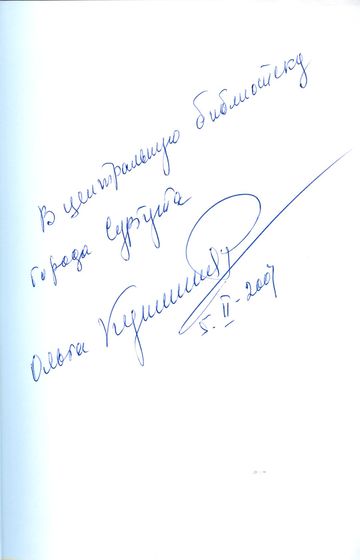 В центральную библиотеку
города Сургута
Ольга
5. II - 2007